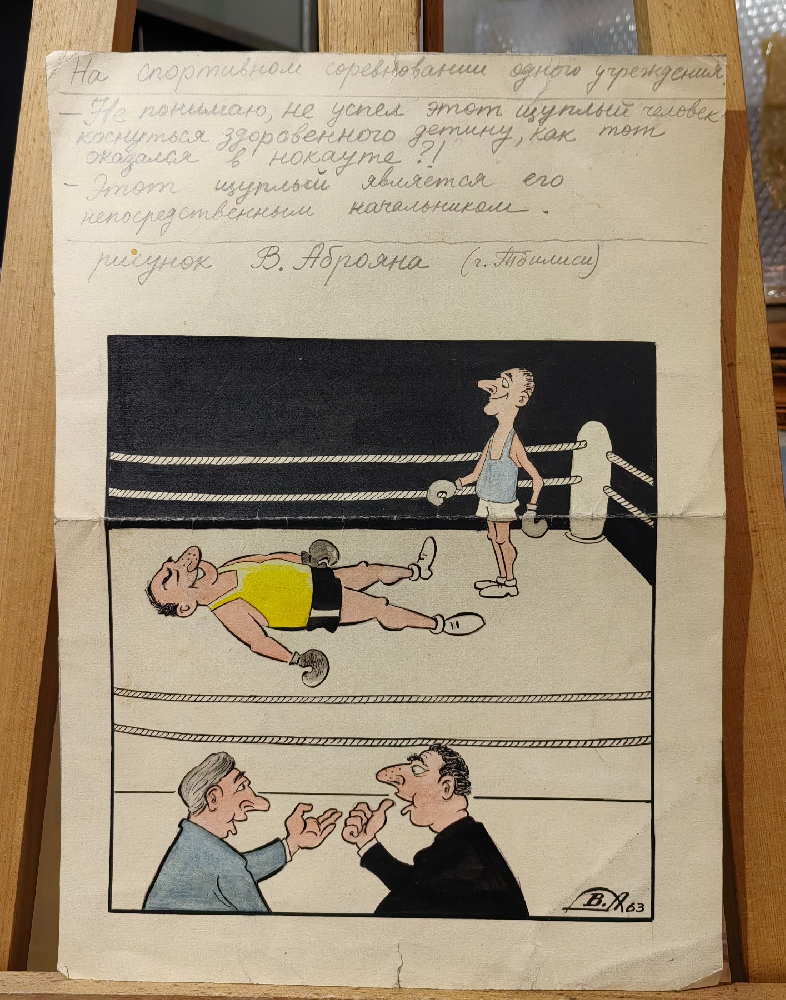 На спортивном соревновании одного учреждения.
– Не понимаю, не успел этот щуплый человек
коснуться здоровенного детину, как тот
оказался в нокауте ?!
– Этот щуплый является его
непосредственным начальником.
рисунок В. Аброяна (г. Тбилиси)
В.А 63